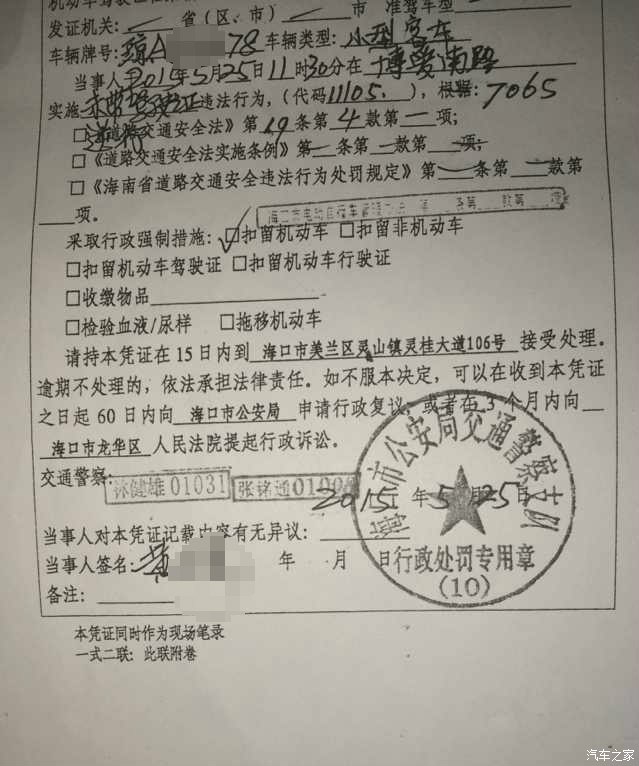 发证机关: 省(区、市) 市 准驾车型
车辆牌号:琼A 78 车辆类型:小型客车
当事人于2015年5月25日11时30分在博爱南路
实施未带驾驶证违法行为,(代码11105.),根据:7065
□《道路交通安全法》第19条第4款第一项;
□《道路交通安全法实施条例》第一条第一款第一项;
□《海南省道路交通安全违法行为处罚规定》第一条第一款第
项。
海口市电动自行车管理办法 第 条第 款第 项
采取行政强制措施:☑扣留机动车 □扣留非机动车
□扣留机动车驾驶证 □扣留机动车行驶证
□收缴物品
□检验血液/尿样 □拖移机动车
请持本凭证在15日内到 海口市美兰区灵山镇灵桂大道106号 接受处理。
逾期不处理的,依法承担法律责任。如不服本决定,可以在收到本凭证
之日起60日内向 海口市公安局 申请行政复议,或者在3个月内向
海口市龙华区 人民法院提起行政诉讼。
交通警察: 林健雄01031 张铭通0100
2015年5月25日
海 市公安局交通警察支队
当事人对本凭证记载内容有无异议:
当事人签名:黄 年 月 日
行政处罚专用章
(10)
备注:
本凭证同时作为现场笔录
一式二联:此联附卷
汽车之家